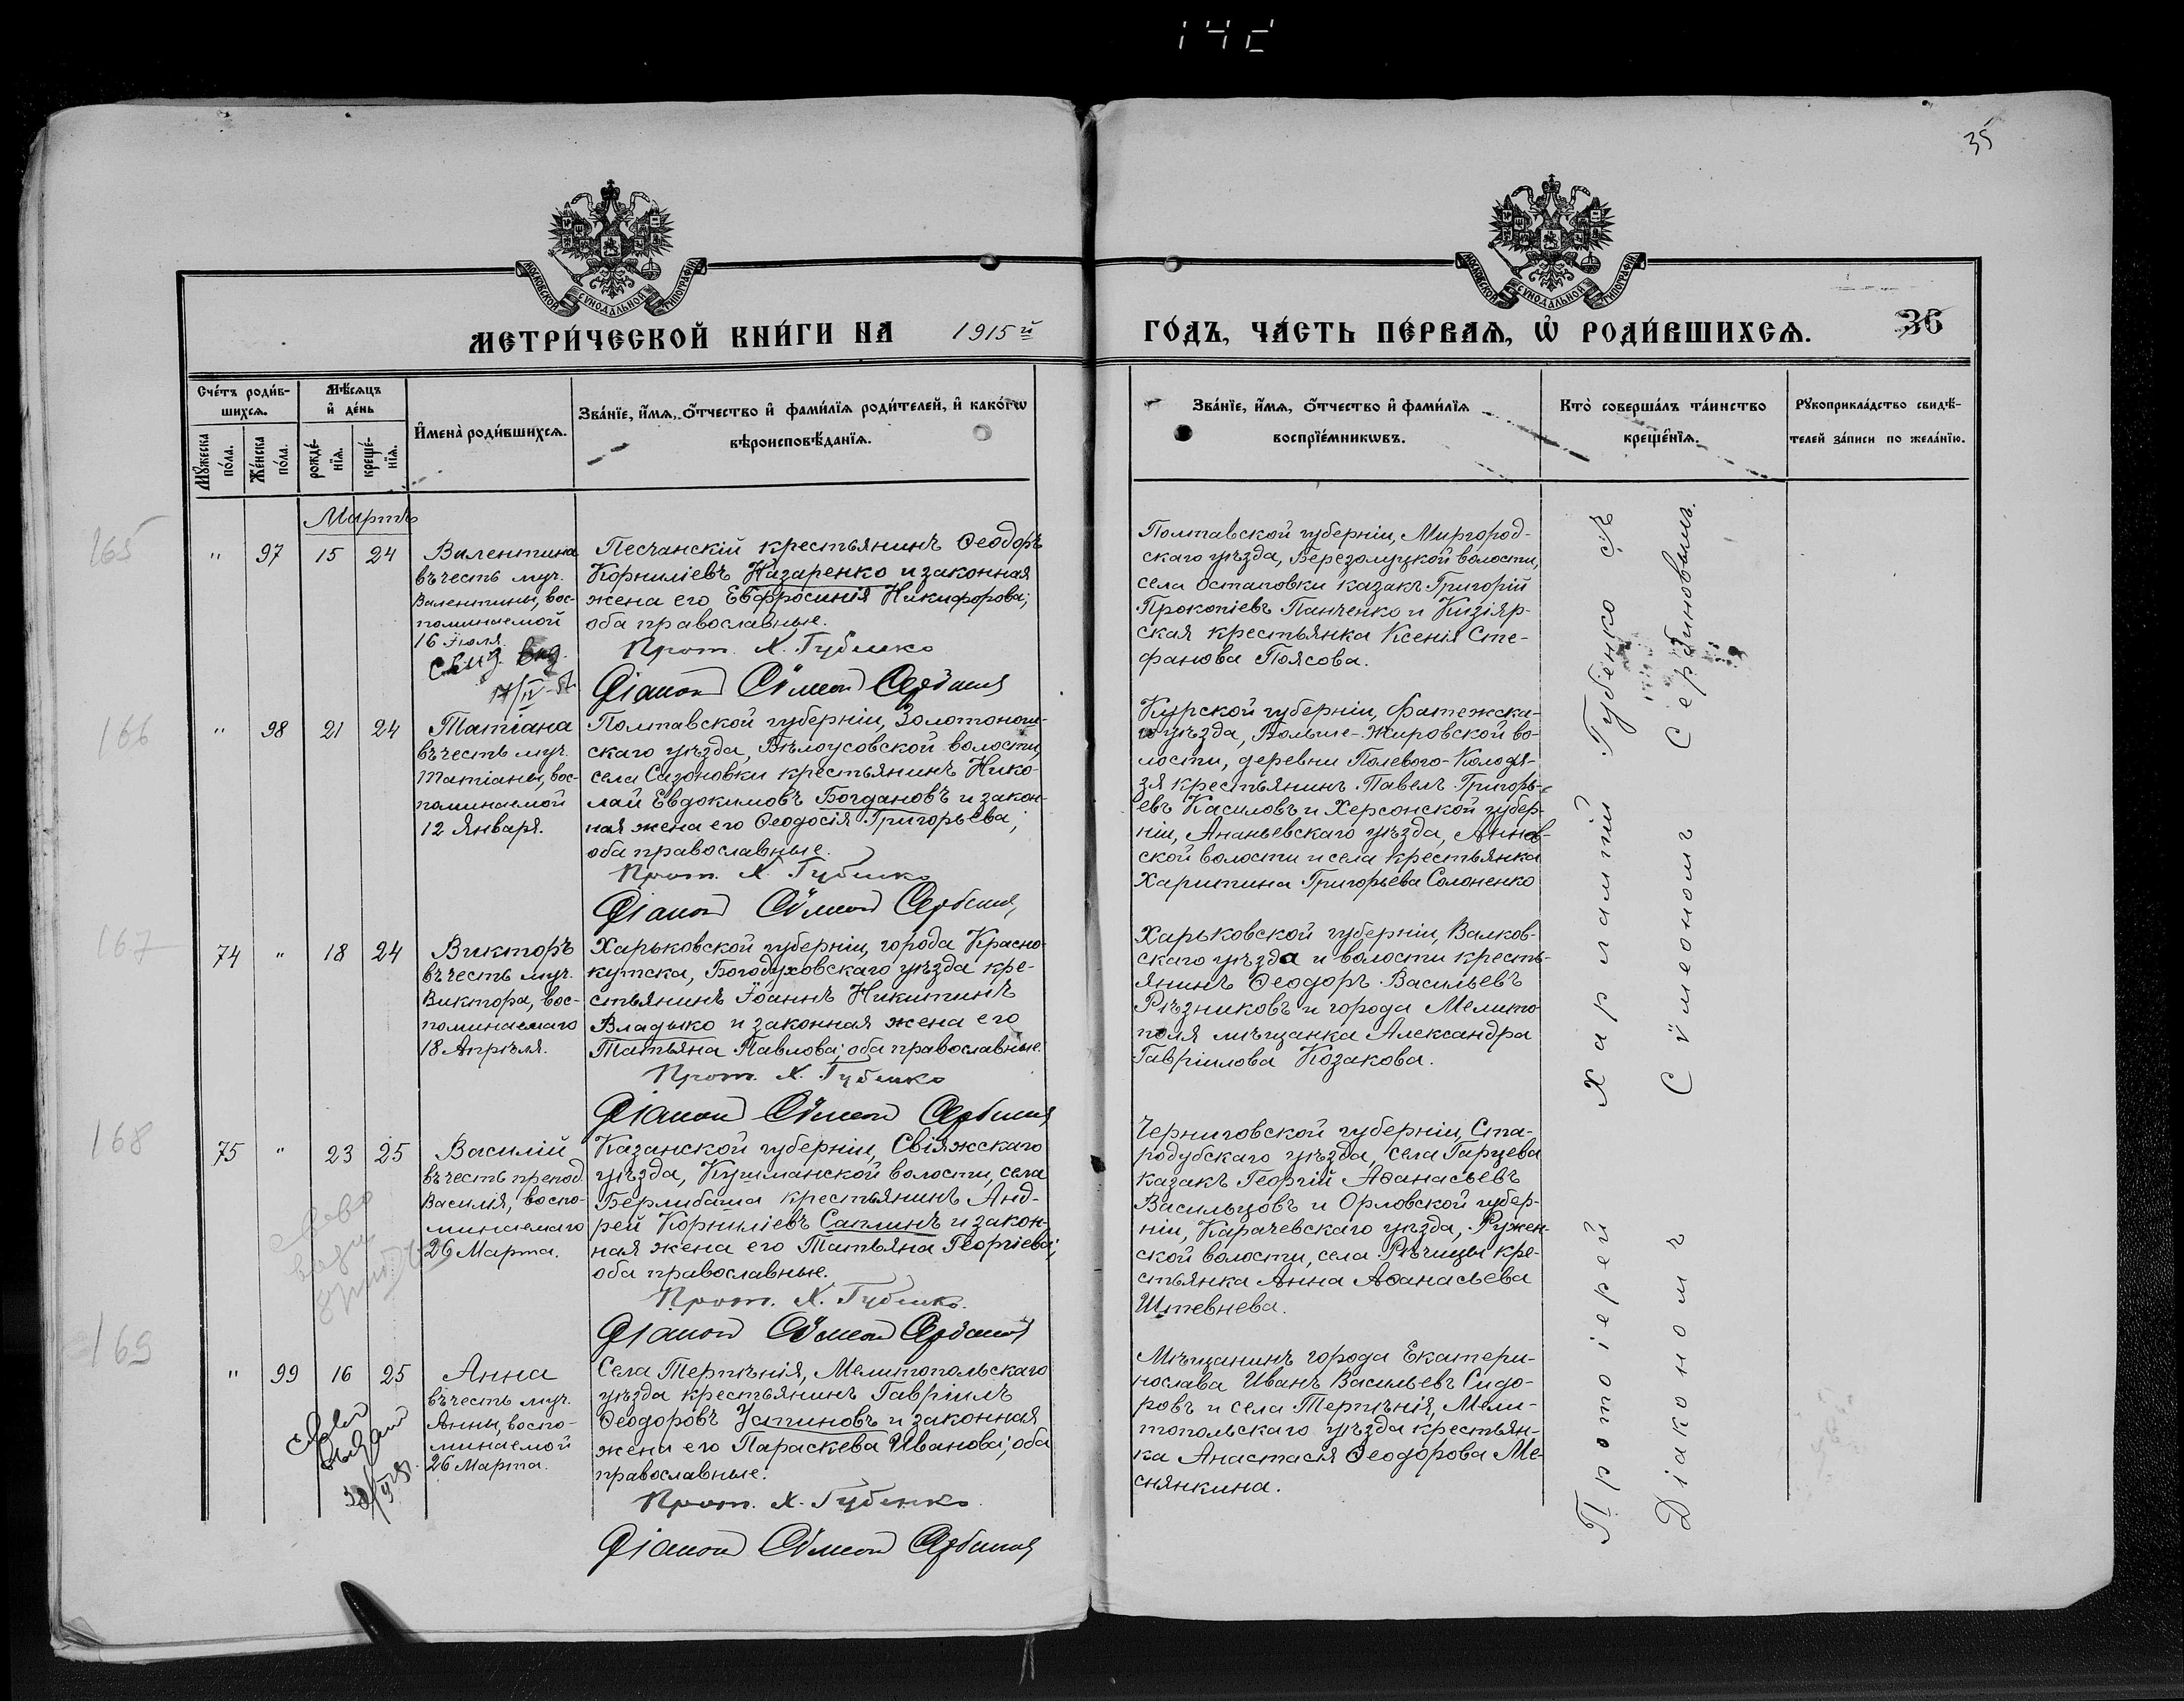 35
МОСКОВСКОЙ СѴНОДАЛЬНОЙ ТИПОГРАФІИ
МОСКОВСКОЙ СѴНОДАЛЬНОЙ ТИПОГРАФІИ
МЕТРИ́ЧЕСКОЙ КНИ́ГИ НА 1915й ГО́ДЪ, ЧА́СТЬ ПЕ́РВАѦ, Ѡ҆ РОДИ́ВШИХСѦ.
36
Сче́тъ роди́в-
шихсѧ.
Мꙋ́жеска
по́ла.
Же́нска
по́ла.
Мѣ́сѧцъ
и҆ де́нь
рожде́-
нїѧ.
креще́-
нїѧ.
И҆мена̀ роди́вшихсѧ.
Зва́нїе, и҆́мѧ, ѻ҆́тчество и҆ фами́лїѧ роди́телей, и҆ како́гѡ
вѣроисповѣ́данїѧ.
Зва́нїе, и҆́мѧ, ѻ҆́тчество и҆ фами́лїѧ
воспрїе́мникѡвъ.
Кто̀ соверша́лъ та́инство
креще́нїѧ.
Рꙋкоприкла́дство свидѣ́-
телей за́писи по жела́нїю.
Мартъ
165
" 97 15 24
Валентина
въ честь муч.
Валентины, вос-
поминаемой
16 Іюля.
свид. выд.
17/IV
Песчанскій крестьянинъ Ѳеодоръ
Корниліевъ Назаренко и законная
жена его Евфросинія Никифорова;
оба православные.
Прот. Х. Губенко
Діаконъ Сѵмеонъ Сербинов
Полтавской губерніи, Миргород-
скаго уѣзда, Березолуцкой волости,
села Остаповки казакъ Григорій
Прокопіевъ Панченко и Кизіяр-
ская крестьянка Ксенія Сте-
фанова Поясова.
166
" 98 21 24
Татіана
въ честь муч.
Татіаны, вос-
поминаемой
12 Января.
Полтавской губерніи, Золотонош-
скаго уѣзда, Бѣлоусовской волости,
села Сазоновки крестьянинъ Нико-
лай Евдокимовъ Богдановъ и закон-
ная жена его Ѳеодосія Григорьева;
оба православные.
Прот. Х. Губенко
Діаконъ Сѵмеонъ Сербинов
Курской губерніи, Фатежска-
го уѣзда, Больше-Жировской во-
лости, деревни Полевого-Колодя-
зя крестьянинъ Павелъ Григорь-
евъ Касиловъ и Херсонской губер-
ніи, Ананьевскаго уѣзда, Аннов-
ской волости и села крестьянка
Харитина Григорьева Солоненко
167
74 " 18 24
Викторъ
въ честь муч.
Виктора, вос-
поминаемаго
18 Апрѣля.
Харьковской губерніи, города Красно-
кутска, Богодуховскаго уѣзда кре-
стьянинъ Іоаннъ Никитинъ
Владыко и законная жена его
Татьяна Павлова; оба православные.
Прот. Х. Губенко
Діаконъ Сѵмеонъ Сербинов
Харьковской губерніи, Валков-
скаго уѣзда и волости кресть-
янинъ Ѳеодоръ Васильевъ
Рѣзниковъ и города Мелито-
поля мѣщанка Александра
Гавріилова Козакова.
168
75 " 23 25
Василій
въ честь препод.
Василія, воспо-
минаемаго
26 Марта.
Казанской губерніи, Свіяжскаго
уѣзда, Кушманской волости, села
Берлибаша крестьянинъ Анд-
рей Корниліевъ Саплинъ и закон-
ная жена его Татьяна Георгіева;
оба православные.
Прот. Х. Губенко.
Діаконъ Сѵмеонъ Сербинов
Черниговской губерніи, Ста-
родубскаго уѣзда, села Гарцева
казакъ Георгій Аѳанасьевъ
Васильцовъ и Орловской губер-
ніи, Карачевскаго уѣзда, Ружен-
ской волости, села Рѣчицы кре-
стьянка Анна Аѳанасьева
Штевнева.
169
" 99 16 25
Анна
въ честь муч.
Анны, воспо-
минаемой
26 Марта.
Села Терпѣнія, Мелитопольскаго
уѣзда крестьянинъ Гавріилъ
Ѳеодоровъ Устиновъ и законная
жена его Параскева Иванова; оба
православные.
Прот. Х. Губенко.
Діаконъ Сѵмеонъ Сербинов
Мѣщанинъ города Екатери-
нослава Иванъ Васильевъ Сидо-
ровъ и села Терпѣнія, Мели-
топольскаго уѣзда крестьян-
ка Анастасія Ѳеодорова Ме-
снянкина.
Протоіерей Харлампій Губенко съ
Діакономъ Сѵмеономъ Сербиновымъ.